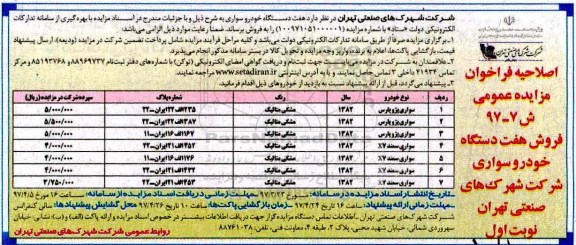 اصلاحیه فراخوان
مزایده عمومی
ش ۷-۹۷
فروش هفت دستگاه
خودرو سواری
شرکت شهرک‌های
صنعتی تهران
نوبت اول
شرکت شهرک‌های صنعتی تهران در نظر دارد هفت دستگاه خودرو سواری به شرح ذیل و با جزئیات مندرج در اسناد مزایده با بهره‌گیری از سامانه تدارکات
الکترونیکی دولت «ستاد» با شماره مزایده را به فروش برساند. ضمنا رعایت موارد ذیل الزامی می‌باشد:
۱-برگزاری مزایده صرفا از طریق سامانه تدارکات الکترونیکی دولت می‌باشد و کلیه مراحل فرآیند مزایده شامل پرداخت تضمین شرکت در مزایده (ودیعه)، ارسال پیشنهاد
قیمت، بازگشایی پاکت‌ها، اعلام به برنده، واریز وجه مزایده و تحویل کالا در بستر سامانه مذکور انجام می‌پذیرد.
۲-علاقمندان به شرکت در مزایده می‌بایست جهت ثبت‌نام و دریافت گواهی امضای الکترونیکی (توکن) با شماره‌های دفتر ثبت‌نام ۸۸۹۶۹۷۳۷ و ۸۵۱۹۳۷۶۸ و مرکز
تماس ۴۱۹۳۴ داخلی تماس حاصل نمایند و یا به آدرس اینترنتی www.setadiran.ir مراجعه نمایند.
۳-پیشنهاد می‌گردد، قبل از ارائه پیشنهاد نسبت به بازدید از خودروهای ذیل اقدام فرمائید.
ردیف نوع خودرو سال رنگ شماره پلاک سپرده شرکت در مزایده (ریال)
۱ سواری پژو پارس ۱۳۸۲ مشکی متالیک ۵/۰۰۰/۰۰۰
۲ سواری پژو پارس ۱۳۸۲ مشکی متالیک ۵/۵۰۰/۰۰۰
۳ سواری پژو پارس ۱۳۸۲ مشکی متالیک ۵/۵۰۰/۰۰۰
۴ سواری سمند LX ۱۳۸۲ مشکی متالیک ۴/۰۰۰/۰۰۰
۵ سواری سمند LX ۱۳۸۲ مشکی متالیک ۴/۰۰۰/۰۰۰
۶ سواری سمند LX ۱۳۸۲ مشکی متالیک ۴/۰۰۰/۰۰۰
۷ سواری سمند LX ۱۳۸۲ مشکی متالیک ۳/۷۵۰/۰۰۰
-تاریخ انتشار اسناد مزایده در سامانه: ۹۷/۳/۲۳ -مهلت زمانی دریافت اسناد مزایده از سامانه: ساعت ۱۶ مورخ ۹۷/۴/۵
-مهلت زمانی ارائه پیشنهاد: ساعت ۱۶ مورخ ۹۷/۴/۲۴ -زمان بازگشایی پاکت‌ها: ساعت ۱۰ تاریخ ۹۷/۴/۲۶ محل گشایش پیشنهادها: سالن کنفرانس
شرکت شهرک‌های صنعتی تهران -اطلاعات تماس دستگاه مزایده گزار جهت دریافت اطلاعات بیشتر در خصوص اسناد مزایده و ارائه پاکت (الف) و (ب): نشانی: خیابان
سهروردی شمالی، خیابان شهید محبی، پلاک ۲، طبقه ۴، معاونت فنی، تلفن: ۸۸۷۶۱۰۳۸
روابط عمومی شرکت شهرک‌های صنعتی تهران